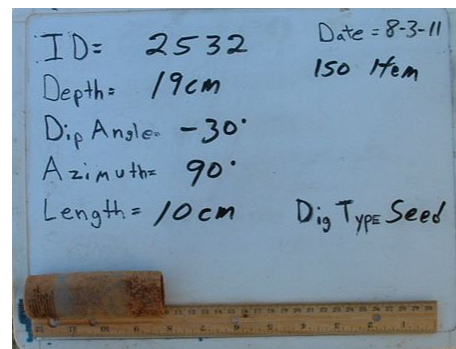 ID= 2532
Date = 8-3-11
ISO Item
Depth= 19cm
Dip Angle= -30°
Azimuth= 90°
Length= 10cm
Dig Type Seed